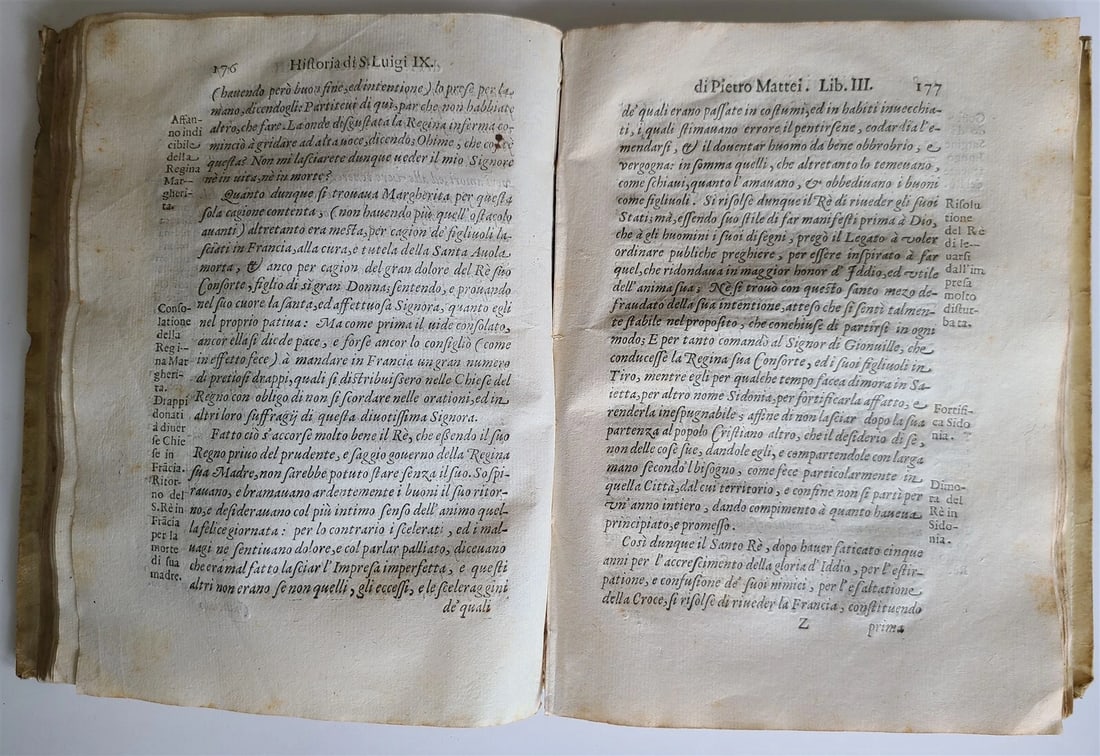 176 Historia di S. Luigi IX.
(hauendo però buon fine, ed intentione) lo prese per la
mano, dicendogli: Partiteui di quì, par che non habbiate
altro, che fare. La onde disgustata la Regina inferma co-
minciò à gridare ad alta uoce, dicendo; Ohime, che co
questa? Non mi lasciarete dunque ueder il mio Signore
nè in uita, nè in morte?
Quanto dunque si trouaua Margherita per questa
sola cagione contenta, (non hauendo più quell'ostacolo
auanti) altretanto era mesta, per cagion de' figliuoli la-
sciati in Francia, alla cura, e tutela della Santa Auola
morta, & anco per cagion del gran dolore del Rè suo
Consorte, figlio di sì gran Donna; sentendo, e prouando
nel suo cuore la santa, ed affettuosa Signora, quanto egli
nel proprio patiua: Ma come prima il uide consolato,
ancor ella si diede pace, e forse ancor lo consigliò (come
in effetto fece) à mandare in Francia un gran numero
di pretiosi drappi, quali si distribuissero nelle Chiese del
Regno con obligo di non si scordare nelle orationi, ed in
altri loro suffragij di questa diuotissima Signora.
Fatto ciò s'accorse molto bene il Rè, che essendo il suo
Regno priuo del prudente, e saggio gouerno della Regina
sua Madre, non sarebbe potuto stare senza il suo. Sospi-
rauano, e bramauano ardentemente i buoni il suo ritor-
no, e desiderauano col più intimo senso dell'animo quel-
la felice giornata: per lo contrario i scelerati, ed i mal-
uagi ne sentiuano dolore, e col parlar palliato, diceuano
che era mal fatto lasciar l'Impresa imperfetta, e questi
altri non erano se non quelli, gli eccessi, e le sceleraggini
de' quali
Affan-
no indi
cibile
della
Regina
Mar-
gheri-
ta.
Conso-
latione
della
Regi-
na Mar
gheri-
ta.
Drappi
donati
à diuer
se Chie
se in
Frãcia.
Ritor-
no del
S. Rè in
Frãcia
per la
morte
di sua
madre.
di Pietro Mattei. Lib. III. 177
de' quali erano passate in costumi, ed in habiti inuecchia-
ti, i quali stimauano errore il pentirsene, codardia l'e-
mendarsi, & il douentar huomo da bene obbrobrio, e
vergogna: in somma quelli, che altretanto lo temeuano,
come schiaui, quanto l'amauano, & obbediuano i buoni
come figliuoli. Si risolse dunque il Rè di riueder gli suoi
Stati; mà, essendo suo stile di far manifesti prima à Dio,
che à gli huomini i suoi disegni, pregò il Legato à voler
ordinare publiche preghiere, per essere inspirato à far
quel, che ridondaua in maggior honor d'Iddio, ed vtile
dell'anima sua; Nè si trouò con questo santo mezo de-
fraudato della sua intentione, atteso che si sentì talmen-
te stabile nel proposito, che conchiuse di partirsi in ogni
modo; E per tanto comandò al Signor di Gionuille, che
conducesse la Regina sua Consorte, ed i suoi figliuoli in
Tiro, mentre egli per qualche tempo facea dimora in Sa-
ietta, per altro nome Sidonia, per fortificarla affatto, e
renderla inespugnabile; affine di non lasciar dopo la sua
partenza al popolo Cristiano altro, che il desiderio di se,
non delle cose sue, dandole egli, e compartendole con larga
mano secondo'l bisogno, come fece particolarmente in
quella Città, dal cui territorio, e confine non si partì per
vn'anno intiero, dando compimento à quanto haueua
principiato, e promesso.
Così dunque il Santo Rè, dopo hauer faticato cinque
anni per l'accrescimento della gloria d'Iddio, per l'estir-
patione, e confusione de' suoi nimici, per l'esaltatione
della Croce, si risolse di riueder la Francia, constituendo
Z prima
Risolu
tione
del Rè
di le-
uarsi
dall'im
presa
molto
distur-
bata.
Fortifi-
ca Sido
nia.
Dimo-
ra del
Rè in
Sido-
nia.